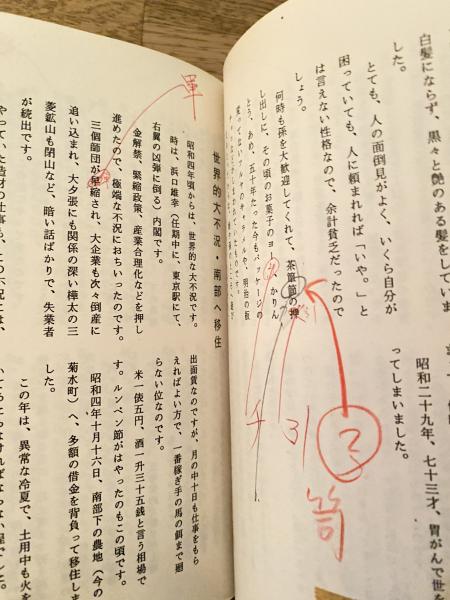 白髪にならず、黒々と艶のある髪をしていま
した。
とても、人の面倒見がよく、いくら自分が
困っていても、人に頼まれれば「いや。」と
は言えない性格なので、余計貧乏だったので
しょう。
何時も孫を大歓迎してくれて、茶簞笥の押
し出しに、その頃のお菓子のヨ
かりん
とう、あめ、五十年たった今もパッケージの
変ってないフルヤのキャラメルや、明治の板
昭和二十九年、七十三才、胃がんで世を
ってしまいました。
子
引
チ
笥
世界的大不況・南部へ移住
昭和四年頃からは、世界的な大不況です。
時は、浜口雄幸(任期中に、東京駅にて、
右翼の凶弾に倒る)内閣です。
金解禁、緊縮政策、産業合理化などを押し
進めたので、極端な不況におちいったのです。
三個師団が
縮され、大企業も次々倒産に
追い込まれ、大夕張にも関係の深い樺太の三
菱鉱山も閉山など、暗い話ばかりで、失業者
が続出です。
やっていた造材の仕事も、この不況には、
軍
出面賃なのですが、月の中十日も仕事をもら
えればよい方で、一番稼ぎ手の馬の餌まで廻
らない位なのです。
米一俵五円、酒一升三十五銭と言う相場で
す。ルンペン節がはやったのもこの頃です。
昭和四年十月十六日、南部下の農地(今の
菊水町)へ、多額の借金を背負って移住しま
した。
この年は、異常な冷夏で、土用中も火を